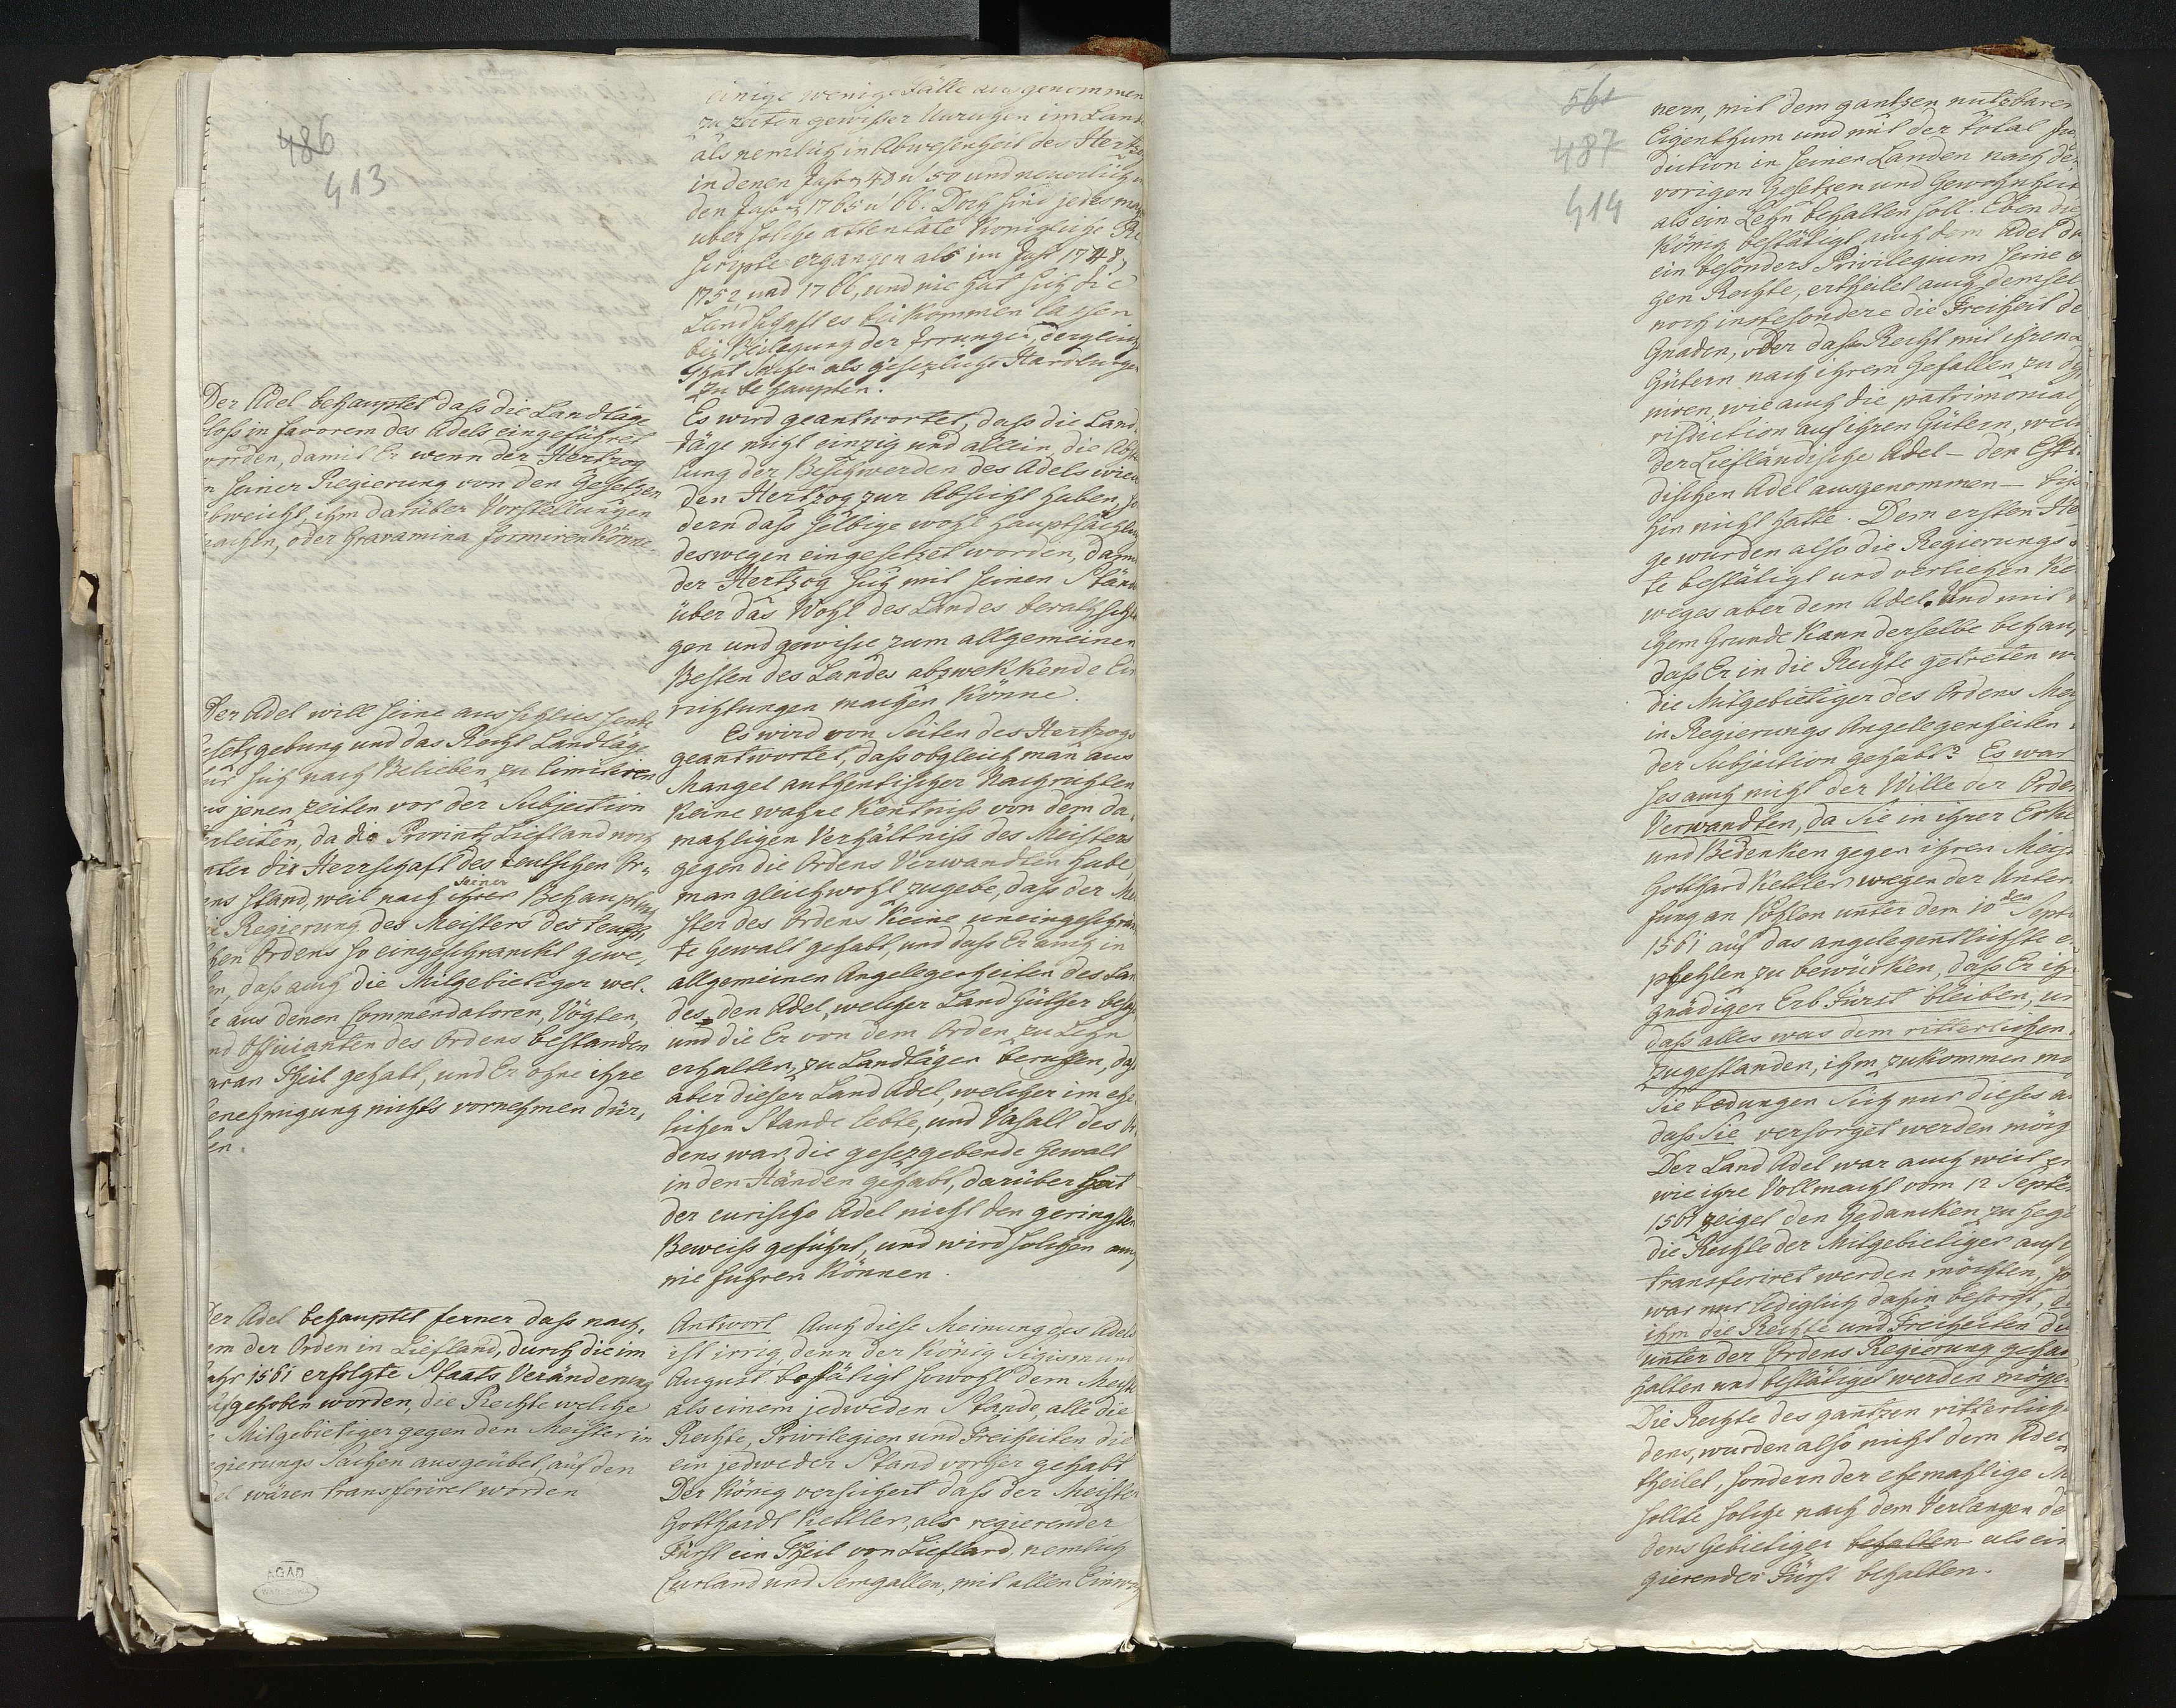 486
413
Der Adel behauptet dass die Landtäge
bloss in favorem des Adels eingeführet
worden, damit Er wenn der Hertzog
in seiner Regierung von den Gesetzen
abweicht, ihm darüber Vorstellungen
machen, oder Gravamina formiren könne.
Der Adel will seine ausschliessende
Gesetzgebung und das Recht Landtäge
für sich nach Belieben zu limitiren
aus jenen zeiten vor der Subjection
herleiten, da die Provintz Liefland noch
unter die Herrschaft des teutschen Or-
dens stand, weil nach ihrer seiner Behauptung
die Regierung des Meisters des teutsch
schen Ordens so eingeschranckt gewe-
sen, dass auch die Mitgebietiger wel-
che aus denen Commendatoren, Vögten,
und Officianten des Ordens bestanden
daran Theil gehabt, und Er ohne ihre
Genehmigung nichts vornehmen dür-
fen.
Der Adel behauptet ferner dass nach-
dem der Orden in Liefland, durch die im
Jahr 1561 erfolgte Staats Veränderung
aufgehoben worden, die Rechte welche
die Mitgebietiger gegen den Meister in
Regierungs Sachen ausgeübet, auf den
Adel wären transferiret worden
AGAD
WARSZAWA
einige wenige Fälle ausgenommen
zu zeiten gewisser Unruhen im Lande
als nemlich in Abwesenheit des Hertzogs
in denen Jahren 48 u 50 und neuerlich in
den Jahren 1765 u 66. Doch sind jedesmahl
über solche attentate Königliche Re-
scripte ergangen als im Jahr 1748,
1752 und 1766, und nie hat sich die
Landschaft es beikommen lassen
bey Beilegung der Irrungen, dergleichen
That Sachen als gesezliche Handlungen
zu behaupten.
Es wird geantwortet, dass die Land-
täge nicht einzig und allein die Abstel
lung der Beschwerden des Adels wieder
den Hertzog zur Absicht haben, son
dern dass selbige wohl hauptsächlich
deswegen eingesetzet worden, damit
der Hertzog sich mit seinen Ständen
über das Wohl des Landes berathschla
gen und gewisse zum allgemeinen
Besten des Landes abzwekkende Ein
richtungen machen könne.
Es wird von Seiten des Hertzogs
geantwortet, dass obgleich man aus
Mangel authentischer Nachrichten
keine wahre Kentniss von dem da-
mahligen Verhältniss des Meisters
gegen die Ordens Verwandten habe,
man gleichwohl zugebe, dass der Mei
ster des Ordens keine uneingeschränk
te Gewalt gehabt, und dass Er auch in
allgemeinen Angelegenheiten des Lan
des, den Adel, welcher Land Güther besass
und die Er von dem Orden zu Lehn
erhalten, zu Landtägen beruffen, dass
aber dieser Land Adel, welcher im ehe
lichen Stande lebte, und Vasall des Or
dens war, die gesezgebende Gewalt
in den Händen gehabt, darüber hat
der curische Adel nicht den geringsten
Beweiss geführt, und wird solchen auch
nie führen können.
Antwort Auch diese Meinung des Adels
ist irrig, denn der König Sigismund
August bestätigt sowohl dem Meister
als einem jedweden Stande, alle die
Rechte, Privilegien und Freiheiten die
ein jedweder Stand vorher gehabt
Der König versichert dass der Meister
Gotthardt Kettler, als regierender
Fürst ein Theil von Liefland, nemlich
Curland und Semgallen, mit allen Einwoh
561
487
414
nern, mit dem gantzen nutzbaren
Eigenthum und mit der total Juris
diction in seinen Landen nach den
vorigen Gesetzen und Gewohnheit
als ein Lehn behalten soll. Eben die
König bestätigt auch dem Adel durch
ein besonders Privilegium seine
gen Rechte, ertheilet auch demsel
noch insbesondere die Freiheit der
Gnaden, oder das Recht mit ihren
Gütern nach ihrem Gefallen zu dispo
niren, wie auch die patrimonial
risdiction auf ihren Gütern, welche
der Liefländische Adel – den Esthl
dischen Adel ausgenommen – biss
hin nicht hatte. Dem ersten He
ge wurden also die Regierungs
te bestätigt und verliehen kei
weges aber dem Adel. Und mit
chem Grunde kann derselbe behaup
dass Er in die Rechte getreten w
die Mitgebietiger des Ordens Mei
in Regierungs Angelegenheiten
der Subjection gehabt? Es war
ses auch nicht der Wille der Orden
Verwandten, da Sie in ihrer Erkl
und Bedenken gegen ihren Meis
Gotthard Kettler wegen der Unter
fung an Pohlen unter dem 10den Sept
1561 auf das angelegentlichste e
pfehlen zu bewürken, dass Er ih
gnädiger Erb Fürst bleiben, un
dass alles was dem ritterlichen
zugestanden, ihm zukommen mö
Sie bedungen sich nur dieses a
dass Sie versorget werden mög
Der Land Adel war auch weit en
wie ihre Vollmacht vom 12 Septe
1561 zeiget den Gedancken zu hege
die Rechte der Mitgebietiger auf
transferiret werden möchten, so
war nur lediglich dahin besorgt, d
ihm die Rechte und Freiheiten die
unter der Ordens Regierung gehab
halten und bestätiget werden möge
Die Rechte des gantzen ritterlich
dens, wurden also nicht dem Adel
theilet, sondern der ehemahlige M
sollte solche nach dem Verlangen de
dens Gebietiger behalten als ein
gierender Fürst behalten.